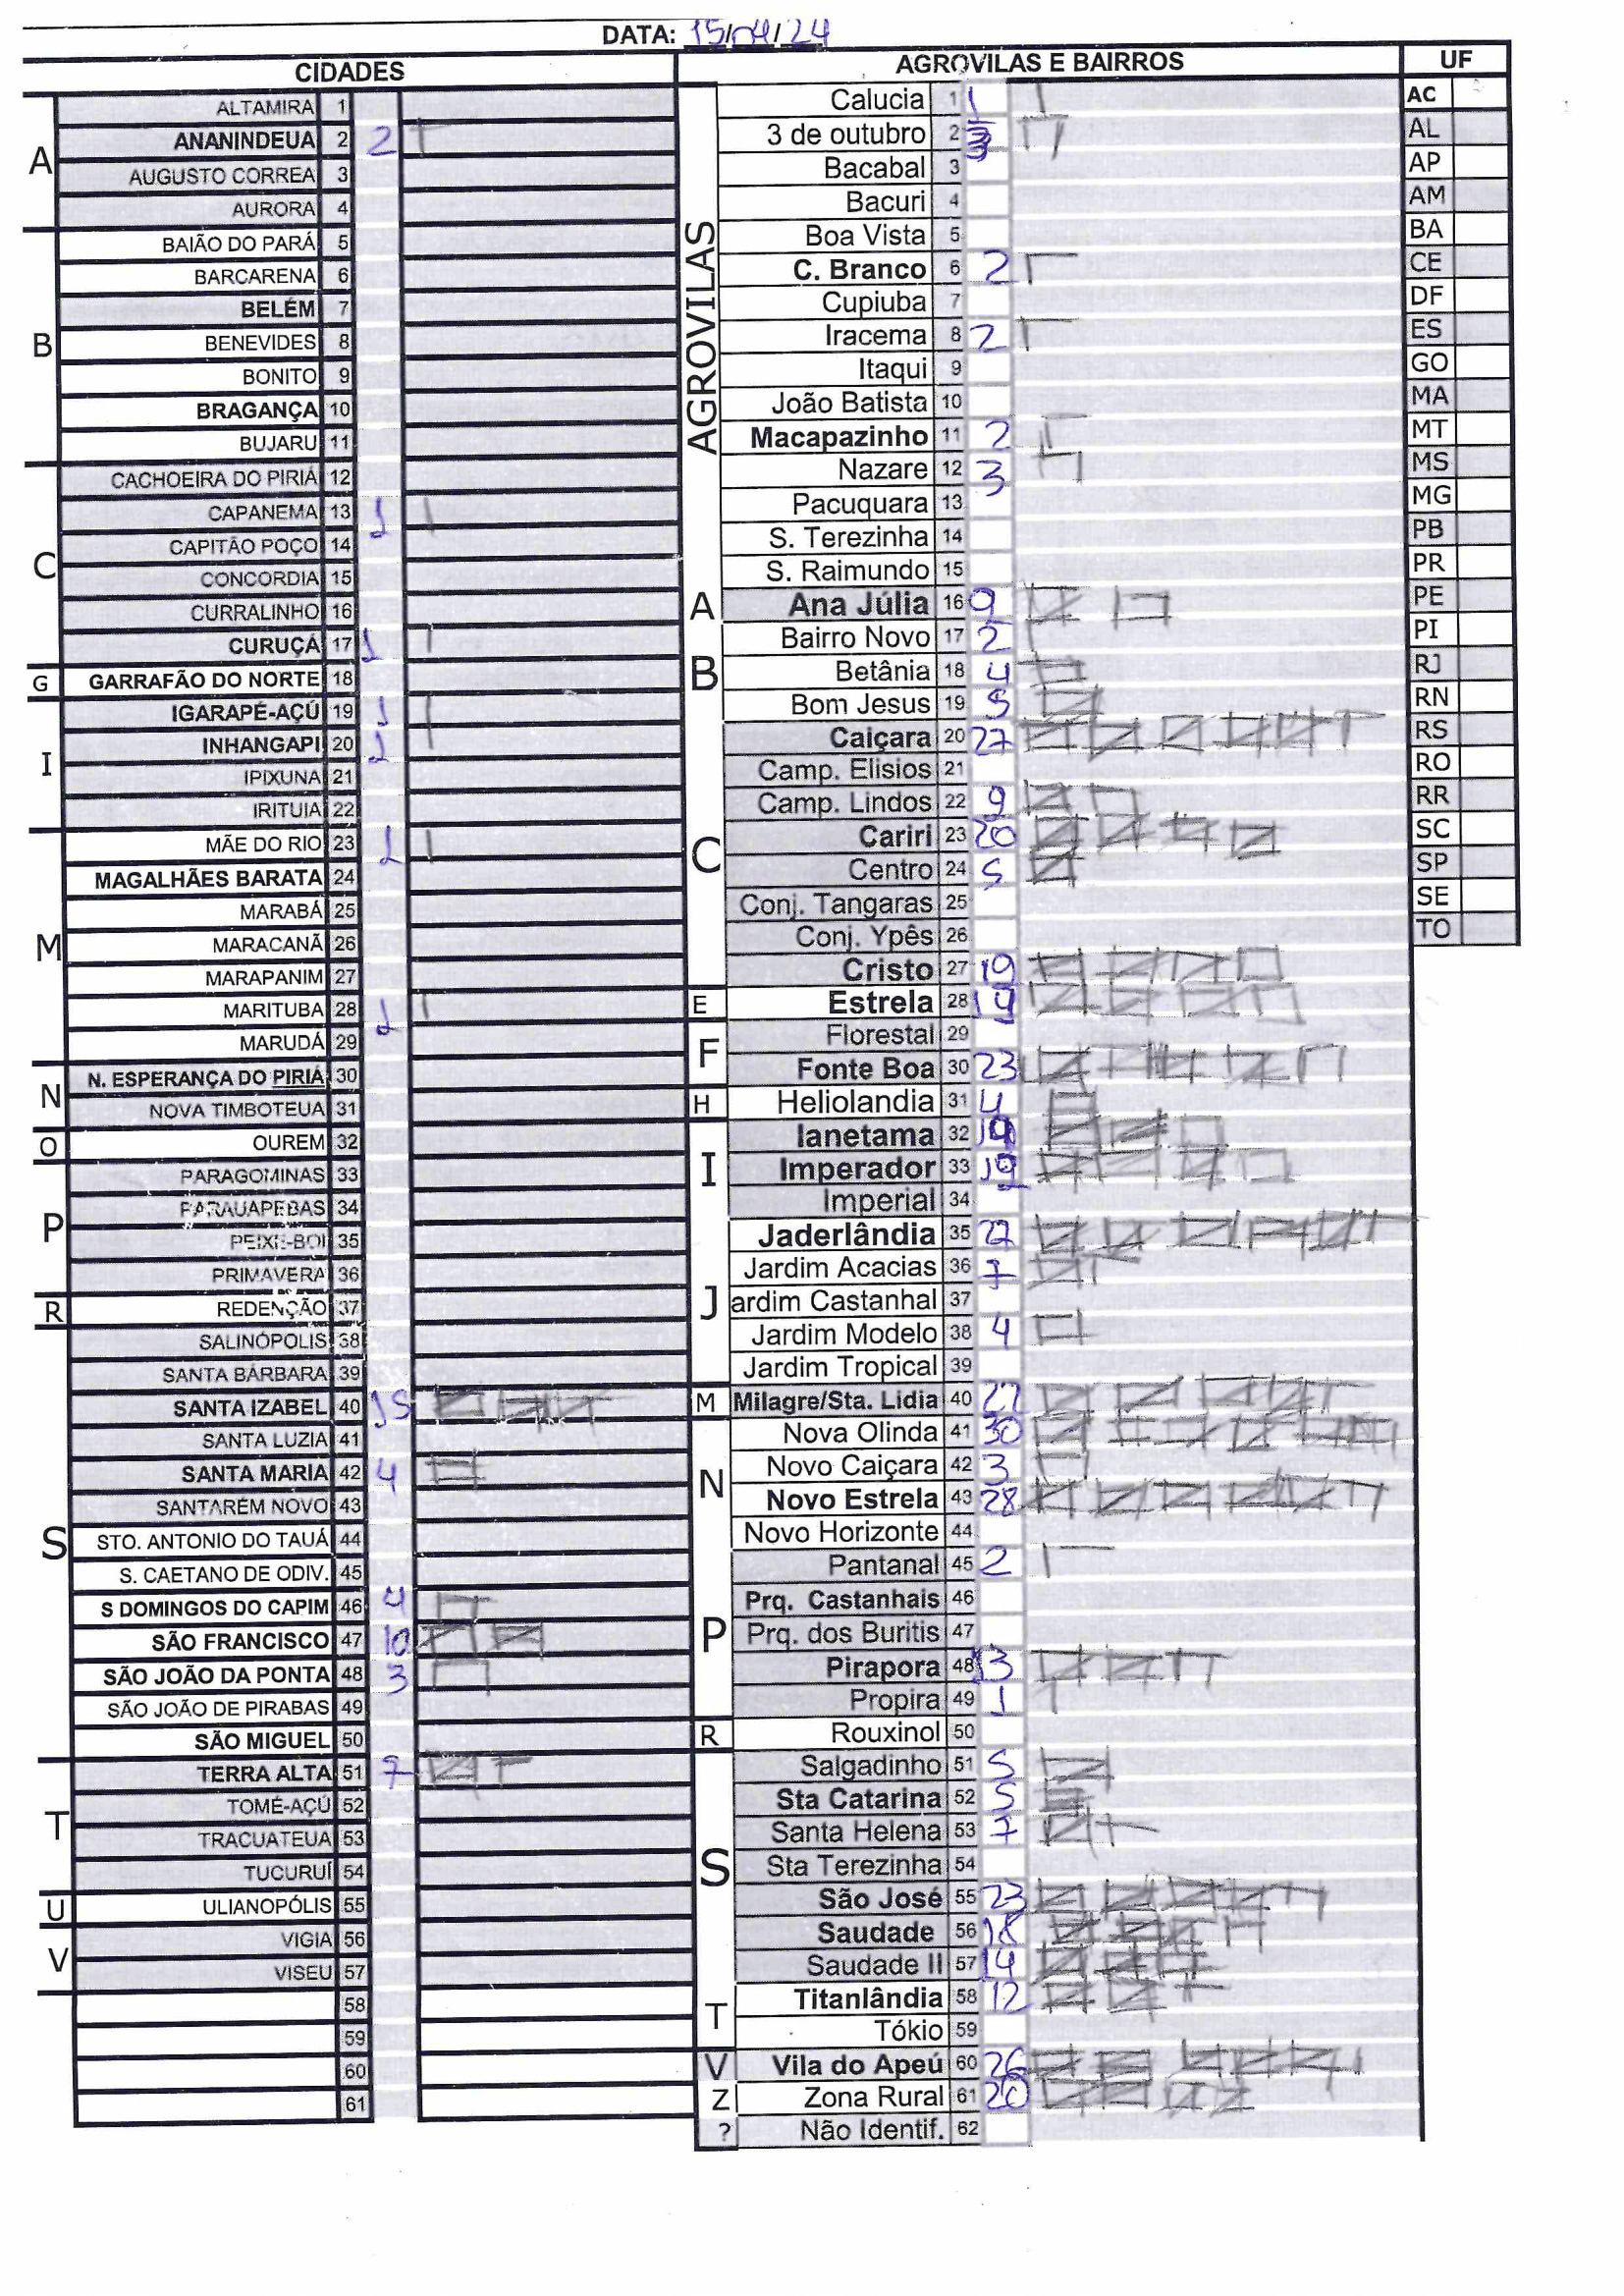 DATA: 15/04/24
CIDADES
A
ALTAMIRA 1
ANANINDEUA 2 2
AUGUSTO CORREA 3
AURORA 4
B
BAIÃO DO PARÁ 5
BARCARENA 6
BELÉM 7
BENEVIDES 8
BONITO 9
BRAGANÇA 10
BUJARU 11
C
CACHOEIRA DO PIRIÁ 12
CAPANEMA 13 1
CAPITÃO POÇO 14
CONCORDIA 15
CURRALINHO 16
CURUÇÁ 17 1
G
GARRAFÃO DO NORTE 18
I
IGARAPÉ-AÇÚ 19 1
INHANGAPI 20 1
IPIXUNA 21
IRITUIA 22
M
MÃE DO RIO 23 1
MAGALHÃES BARATA 24
MARABÁ 25
MARACANÃ 26
MARAPANIM 27
MARITUBA 28 1
MARUDÁ 29
N
N. ESPERANÇA DO PIRIÁ 30
NOVA TIMBOTEUA 31
O
OUREM 32
P
PARAGOMINAS 33
PARAUAPEBAS 34
PEIXE-BOI 35
PRIMAVERA 36
R
REDENÇÃO 37
S
SALINÓPOLIS 38
SANTA BÁRBARA 39
SANTA IZABEL 40 15
SANTA LUZIA 41
SANTA MARIA 42 4
SANTARÉM NOVO 43
STO. ANTONIO DO TAUÁ 44
S. CAETANO DE ODIV. 45
S DOMINGOS DO CAPIM 46 4
SÃO FRANCISCO 47 10
SÃO JOÃO DA PONTA 48 3
SÃO JOÃO DE PIRABAS 49
SÃO MIGUEL 50
T
TERRA ALTA 51 7
TOMÉ-AÇÚ 52
TRACUATEUA 53
TUCURUÍ 54
U
ULIANOPÓLIS 55
V
VIGIA 56
VISEU 57
58
59
60
61
AGROVILAS E BAIRROS
AGROVILAS
Calucia 1 1
3 de outubro 2 3
Bacabal 3
Bacuri 4
Boa Vista 5
C. Branco 6 2
Cupiuba 7
Iracema 8 2
Itaqui 9
João Batista 10
Macapazinho 11 2
Nazare 12 3
Pacuquara 13
S. Terezinha 14
S. Raimundo 15
A
Ana Júlia 16 9
B
Bairro Novo 17 2
Betânia 18 4
Bom Jesus 19 5
C
Caiçara 20 27
Camp. Elisios 21
Camp. Lindos 22 9
Cariri 23 20
Centro 24 5
Conj. Tangaras 25
Conj. Ypês 26
Cristo 27 19
E
Estrela 28 19
F
Florestal 29
Fonte Boa 30 23
H
Heliolandia 31 4
I
Ianetama 32
Imperador 33 19
Imperial 34
J
Jaderlândia 35 27
Jardim Acacias 36 7
ardim Castanhal 37
Jardim Modelo 38 4
Jardim Tropical 39
M
Milagre/Sta. Lidia 40 27
N
Nova Olinda 41 30
Novo Caiçara 42 3
Novo Estrela 43 28
Novo Horizonte 44
P
Pantanal 45 2
Prq. Castanhais 46
Prq. dos Buritis 47
Pirapora 48 13
Propira 49 1
R
Rouxinol 50
S
Salgadinho 51 5
Sta Catarina 52 5
Santa Helena 53 7
Sta Terezinha 54
São José 55 23
Saudade 56 18
Saudade II 57 14
T
Titanlândia 58 12
Tókio 59
V
Vila do Apeú 60 26
Z
Zona Rural 61 20
?
Não Identif. 62
UF
AC
AL
AP
AM
BA
CE
DF
ES
GO
MA
MT
MS
MG
PB
PR
PE
PI
RJ
RN
RS
RO
RR
SC
SP
SE
TO